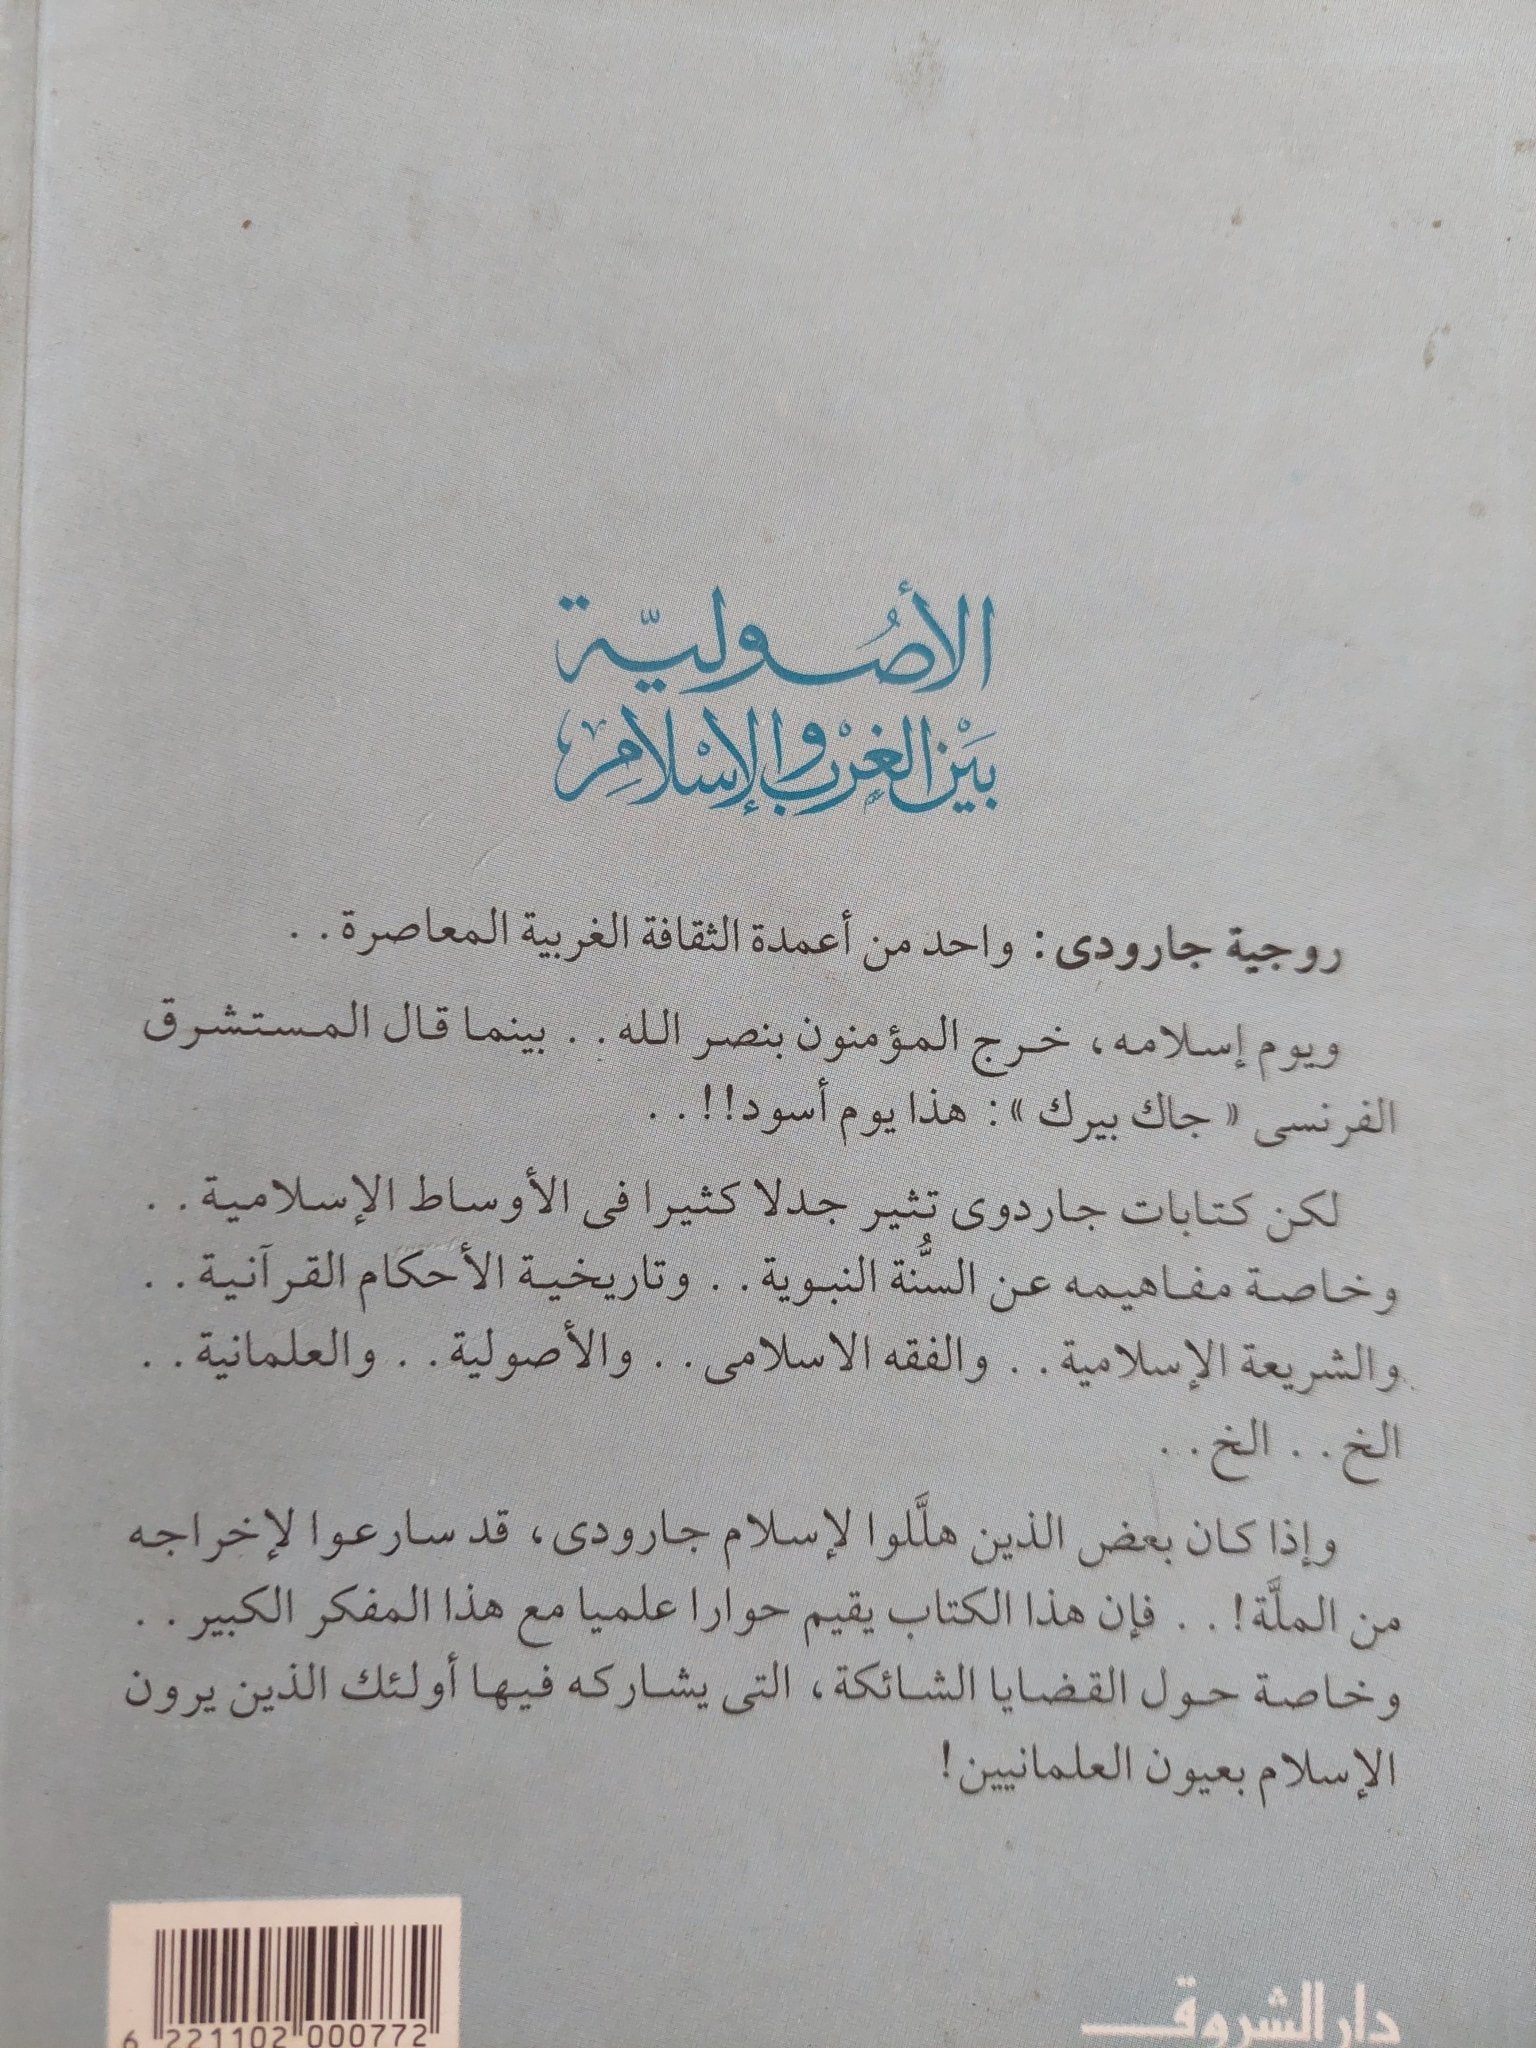 الأُصُولِيَّة
بَيْن الغَرْب وَالإِسْلَامِ
روجية جارودى: واحد من أعمدة الثقافة الغربية المعاصرة. .
ويوم إسلامه، خرج المؤمنون بنصر الله. . بينما قال المستشرق
الفرنسى « جاك بيرك »: هذا يوم أسود!!. .
لكن كتابات جاردوى تثير جدلا كثيرا فى الأوساط الإسلامية. .
وخاصة مفاهيمه عن السُّنة النبوية. . وتاريخية الأحكام القرآنية. .
والشريعة الإسلامية. . والفقه الاسلامى. . والأصولية. . والعلمانية. .
الخ. . الخ. .
وإذا كان بعض الذين هلَّلوا لإسلام جارودى، قد سارعوا لإخراجه
من الملَّة!. . فإن هذا الكتاب يقيم حوارا علميا مع هذا المفكر الكبير. .
وخاصة حول القضايا الشائكة، التى يشاركه فيها أولئك الذين يرون
الإسلام بعيون العلمانيين!
دار الشروق
6 221102 000772